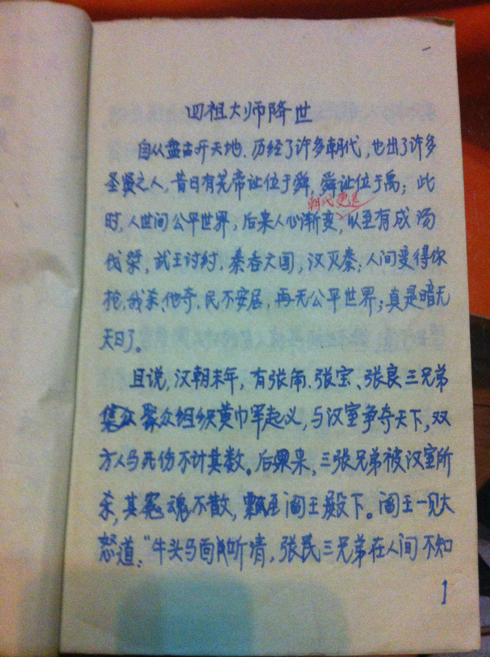 四祖大师降世
自从盘古开天地、历经了许多朝代，也出了许多
圣贤之人，昔日有尧帝让位于舜，舜让位于禹；此
朝代更迭
时，人世间公平世界，后来人心渐变，以至有成汤
伐桀，武王讨纣，秦吞六国，汉灭秦；人间变得你
抢、我杀、他夺，民不安居，再无公平世界；真是暗无
天日了。
且说，汉朝末年，有张角、张宝、张良三兄弟
集众聚众组织黄巾军起义，与汉室争夺天下，双
方人马死伤不计其数。后来，三张兄弟被汉室所
杀，其冤魂不散，飘至阎王殿下。阎王一见大
怒道：“牛头马面听清，张氏三兄弟在人间不知
1